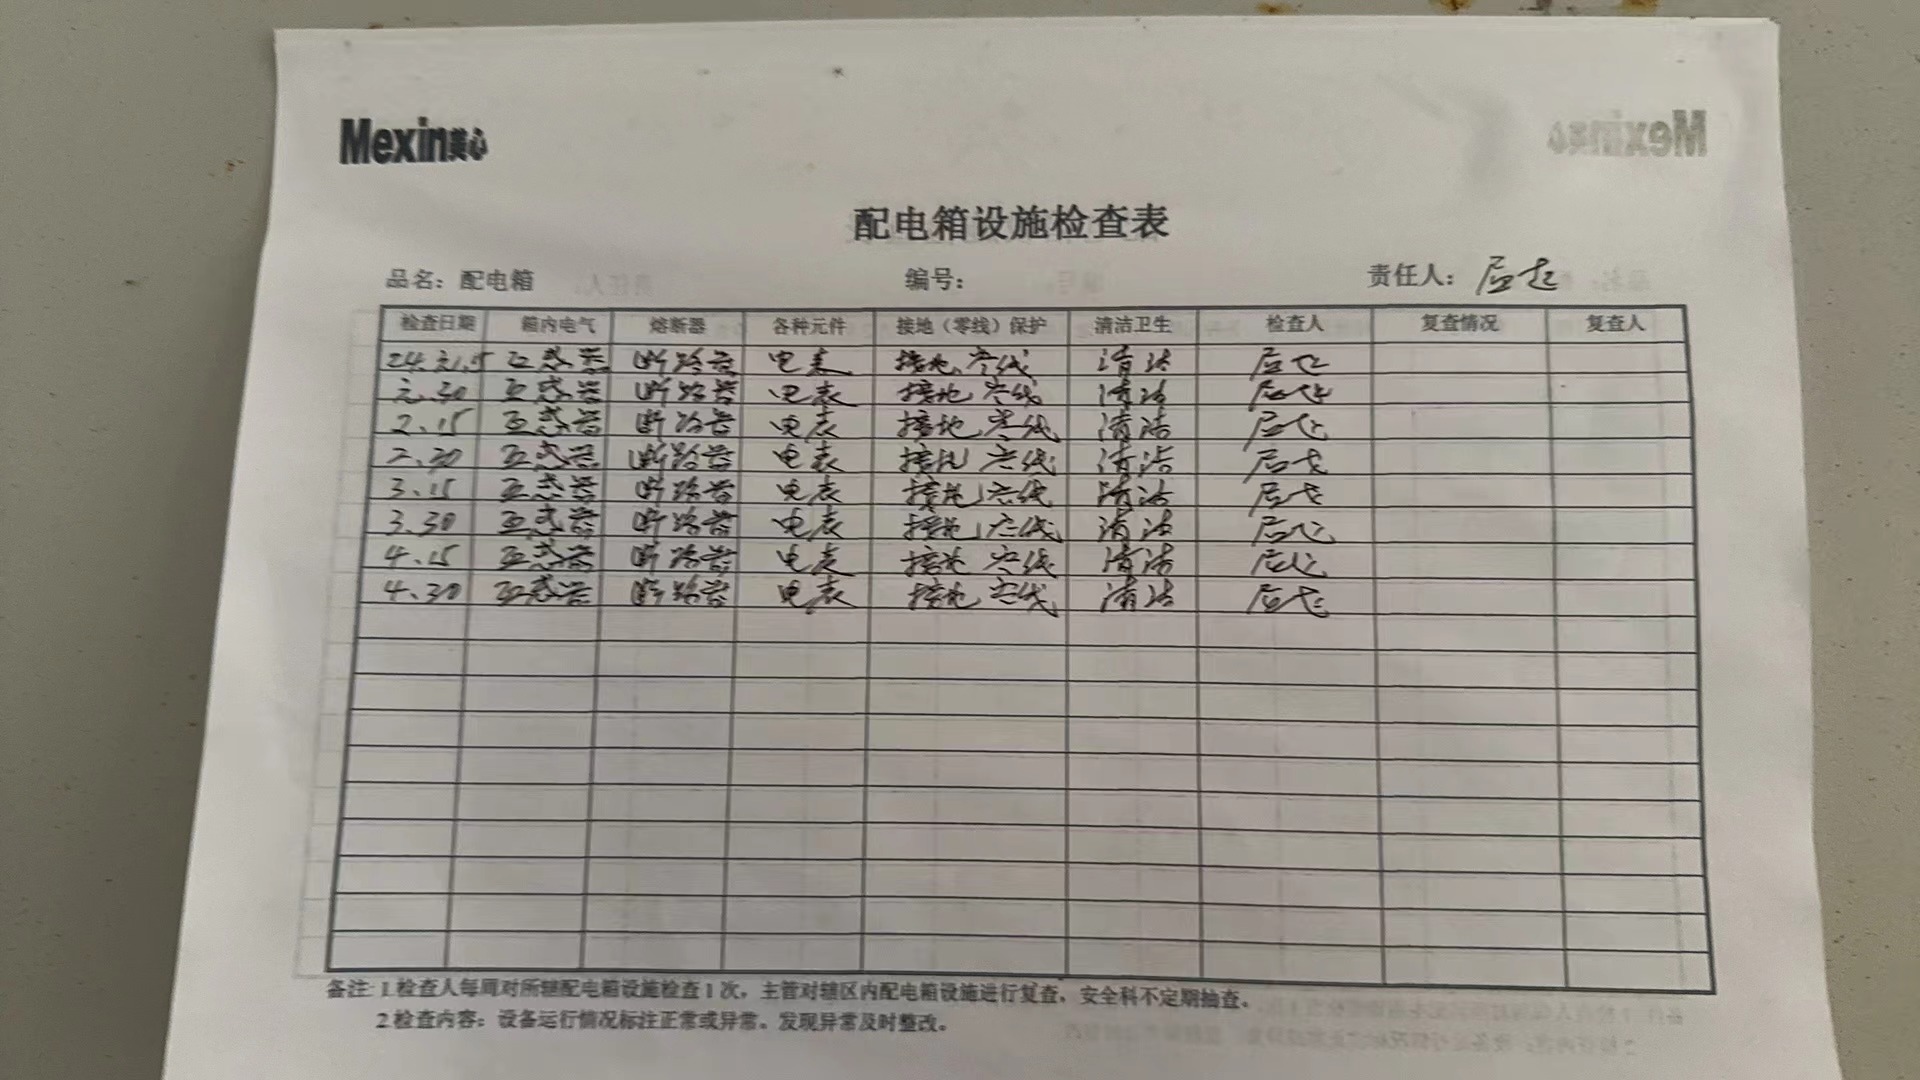 Mexin美心
配电箱设施检查表
品名：配电箱 编号： 责任人：
检查日期 箱内电气 熔断器 各种元件 接地（零线）保护 清洁卫生 检查人 复查情况 复查人
24.元.15 互感器 断路器 电表 接地 零线 清洁
元.30 互感器 断路器 电表 接地 零线 清洁
2.15 互感器 断路器 电表 接地 零线 清洁
2.30 互感器 断路器 电表 接地 零线 清洁
3.15 互感器 断路器 电表 接地 零线 清洁
3.30 互感器 断路器 电表 接地 零线 清洁
4.15 互感器 断路器 电表 接地 零线 清洁
4.30 互感器 断路器 电表 接地 零线 清洁
备注：1.检查人每周对所辖配电箱设施检查1次，主管对辖区内配电箱设施进行复查，安全科不定期抽查。
2.检查内容：设备运行情况标注正常或异常。发现异常及时整改。